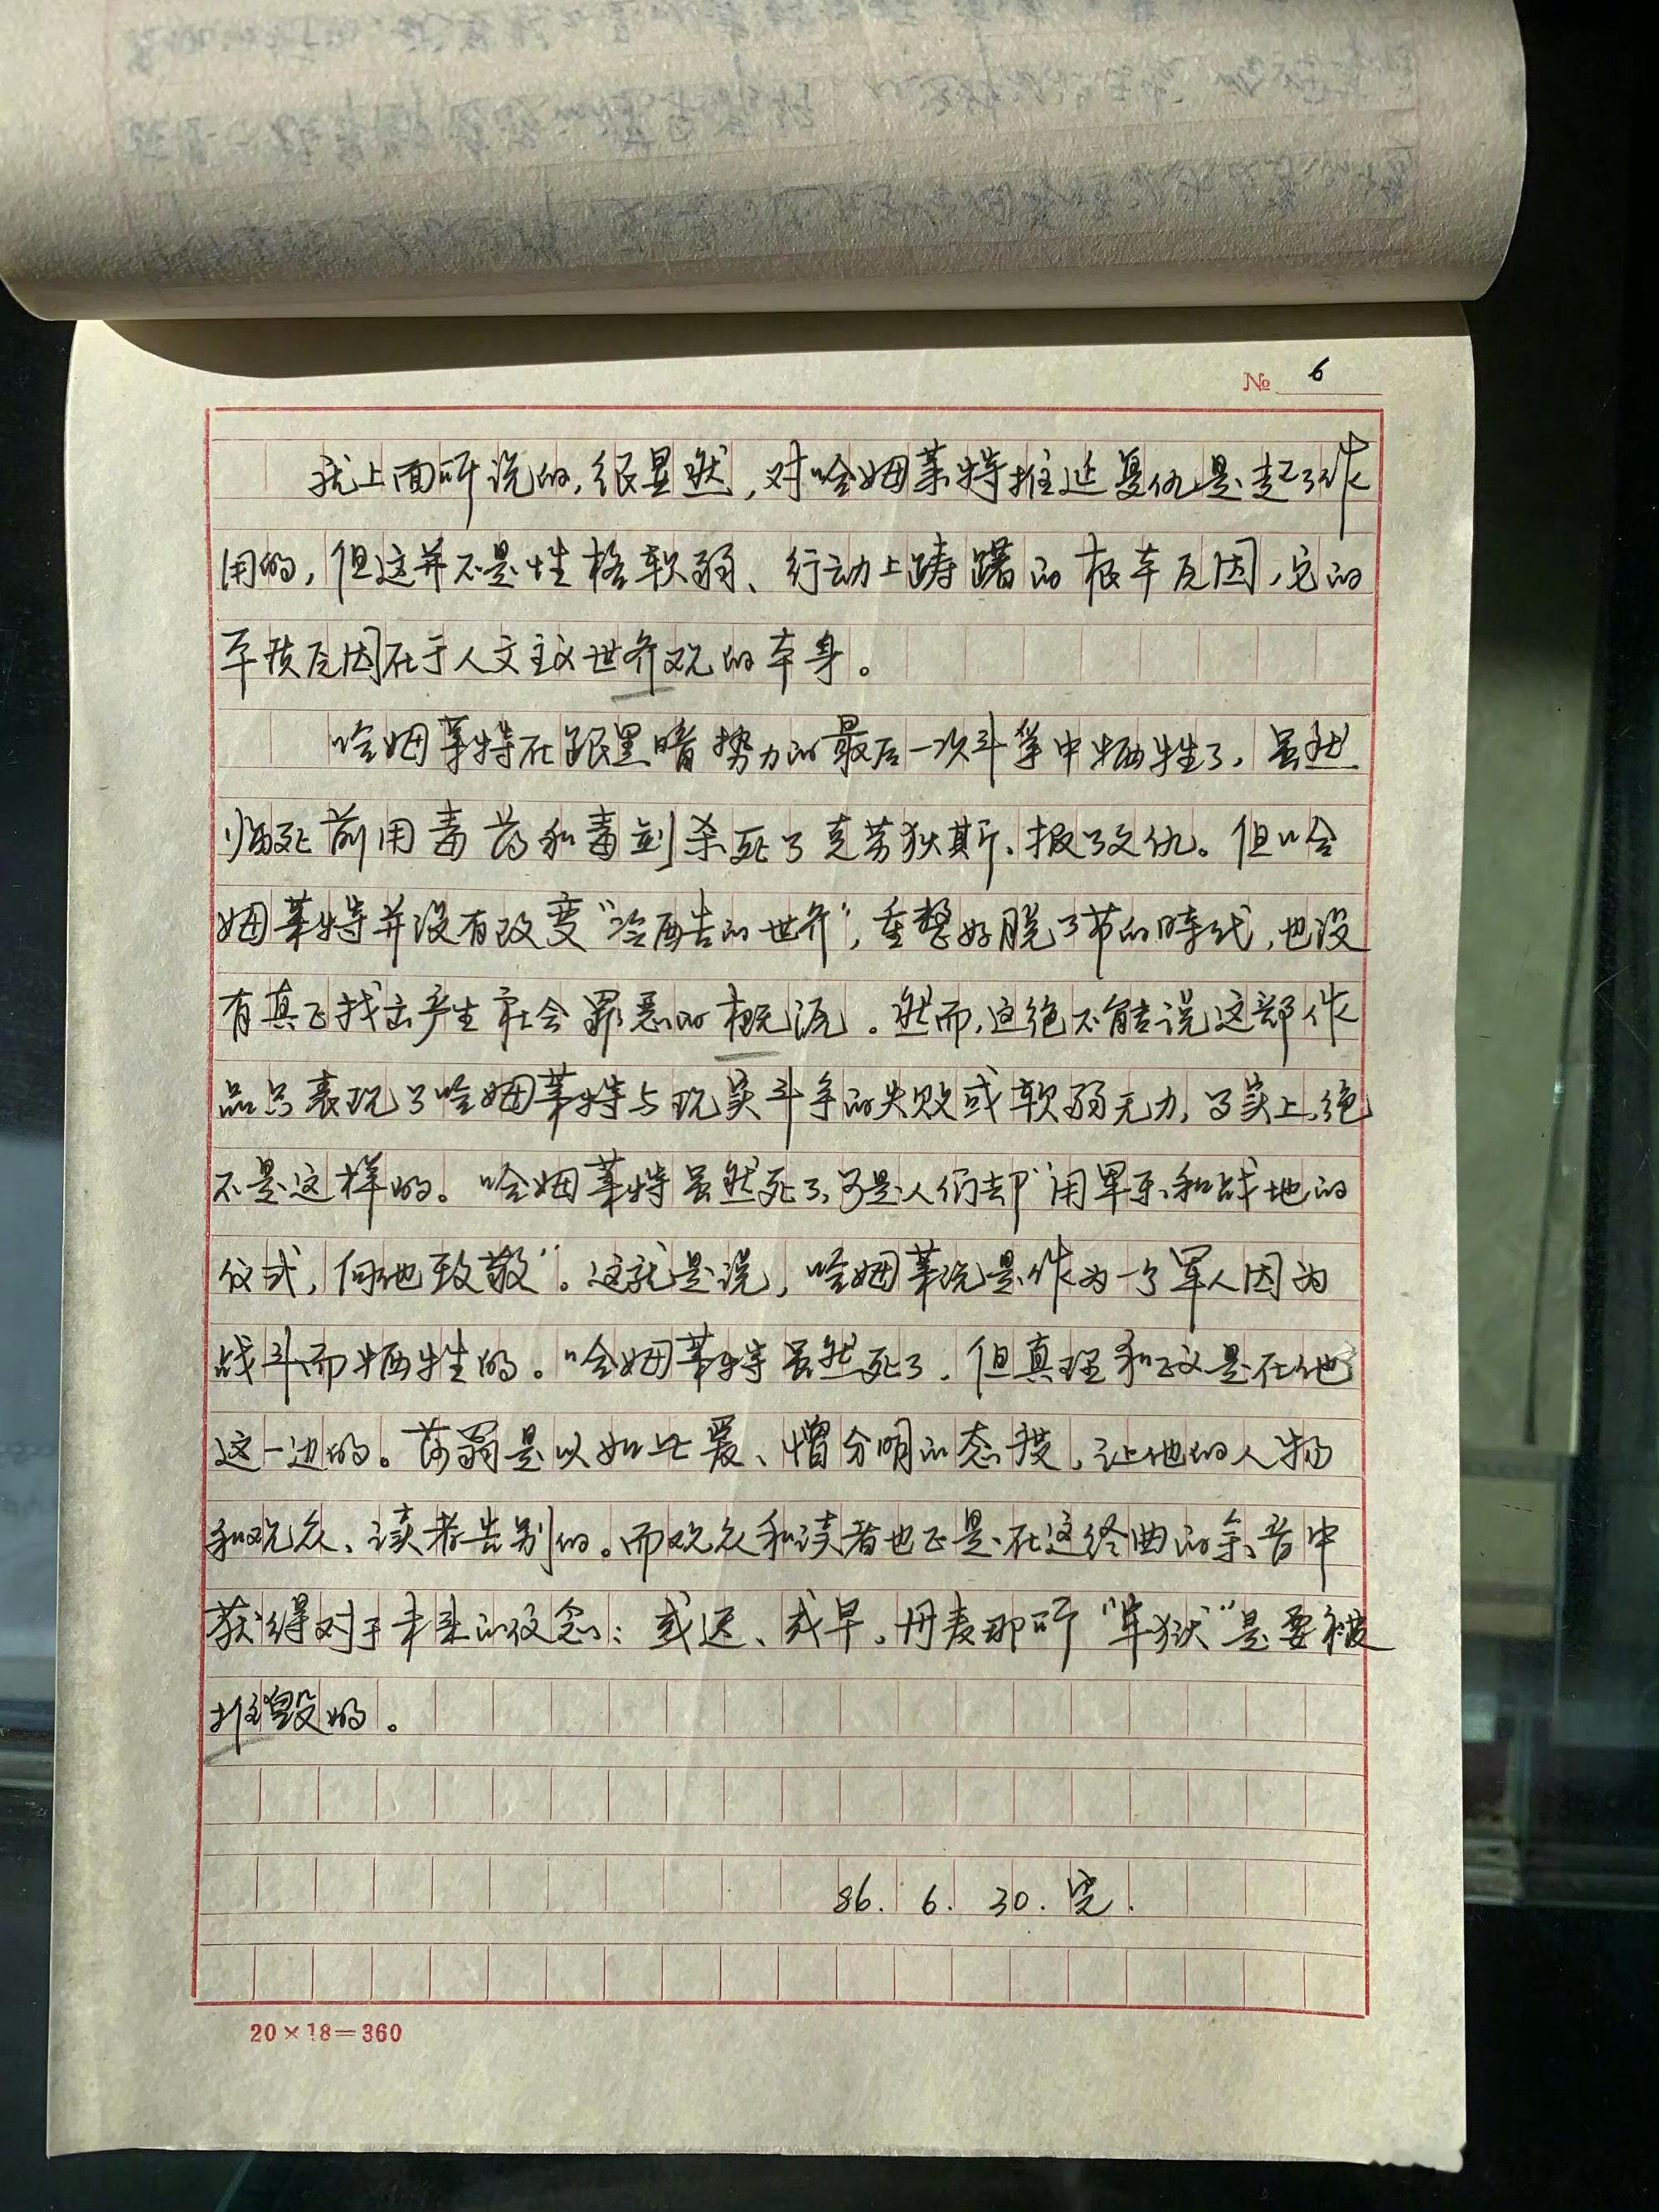 № 6
就上面所说的,很显然,对哈姆莱特推延复仇是起了作
用的,但这并不是性格软弱、行动上踌躇的根本原因,它的
本质原因在于人文主义世界观的本身。
哈姆莱特在跟黑暗势力的最后一次斗争中牺牲了,虽然
临死前用毒药和毒剑杀死了克劳狄斯、报了父仇。但哈
姆莱特并没有改变“冷酷的世界”,重整好脱了节的時代,也没
有真正找出产生社会罪恶的根源。然而,这绝不能说这部作
品只表现了哈姆莱特与现实斗争的失败或软弱无力,事实上,绝
不是这样的。哈姆莱特虽然死了,可是人们却“用军乐和战地的
仪式,向他致敬”。这就是说,哈姆莱特是作为一个军人因为
战斗而牺牲的。哈姆莱特虽然死了.但真理和正义是在他
这一边的。莎翁是以如此爱、憎分明的态度,让他的人物
和观众、读者告别的。而观众和读者也正是在这终曲的余音中
获得对于未来的信念:或迟、或早,丹麦那所“牢狱”是要被
摧毁的。
86.6.30.完.
20×18=360